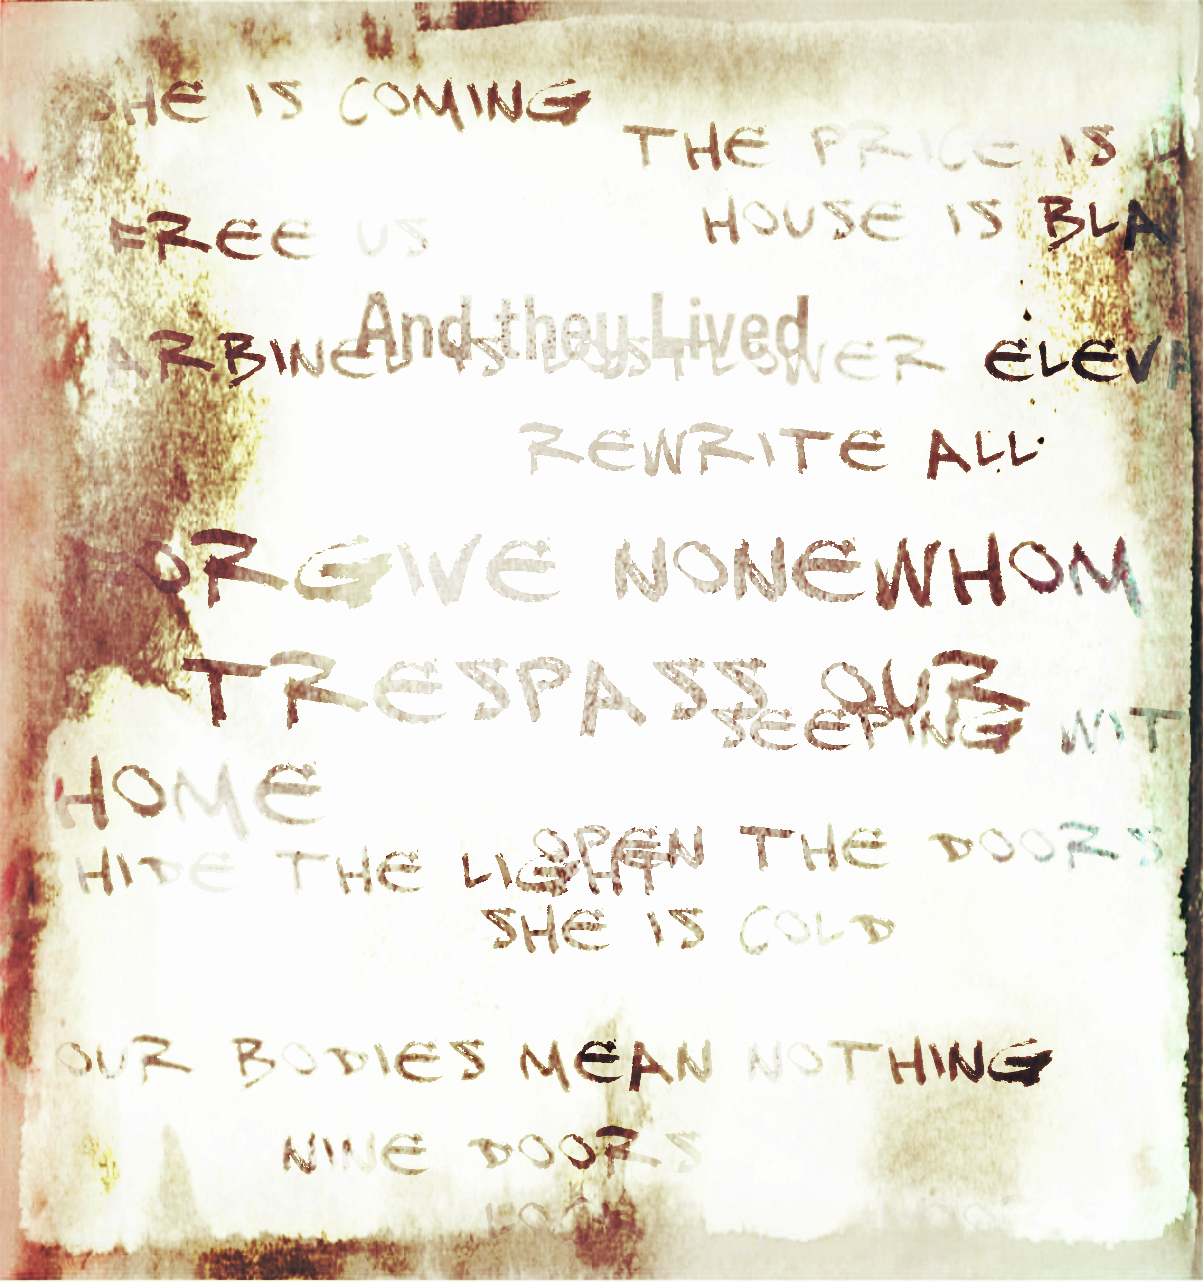 SHE IS COMING
THE PRICE IS
FREE US
HOUSE IS BLA
And they Lived
ARBINEL IS LOST LOWER ELEVA
REWRITE ALL
ORGIVE NONEWHOM
TRESPASS OUR
SEEPING WIT
HOME
OPEN THE DOORS
HIDE THE LIGHT
SHE IS COLD
OUR BODIES MEAN NOTHING
NINE DOORS